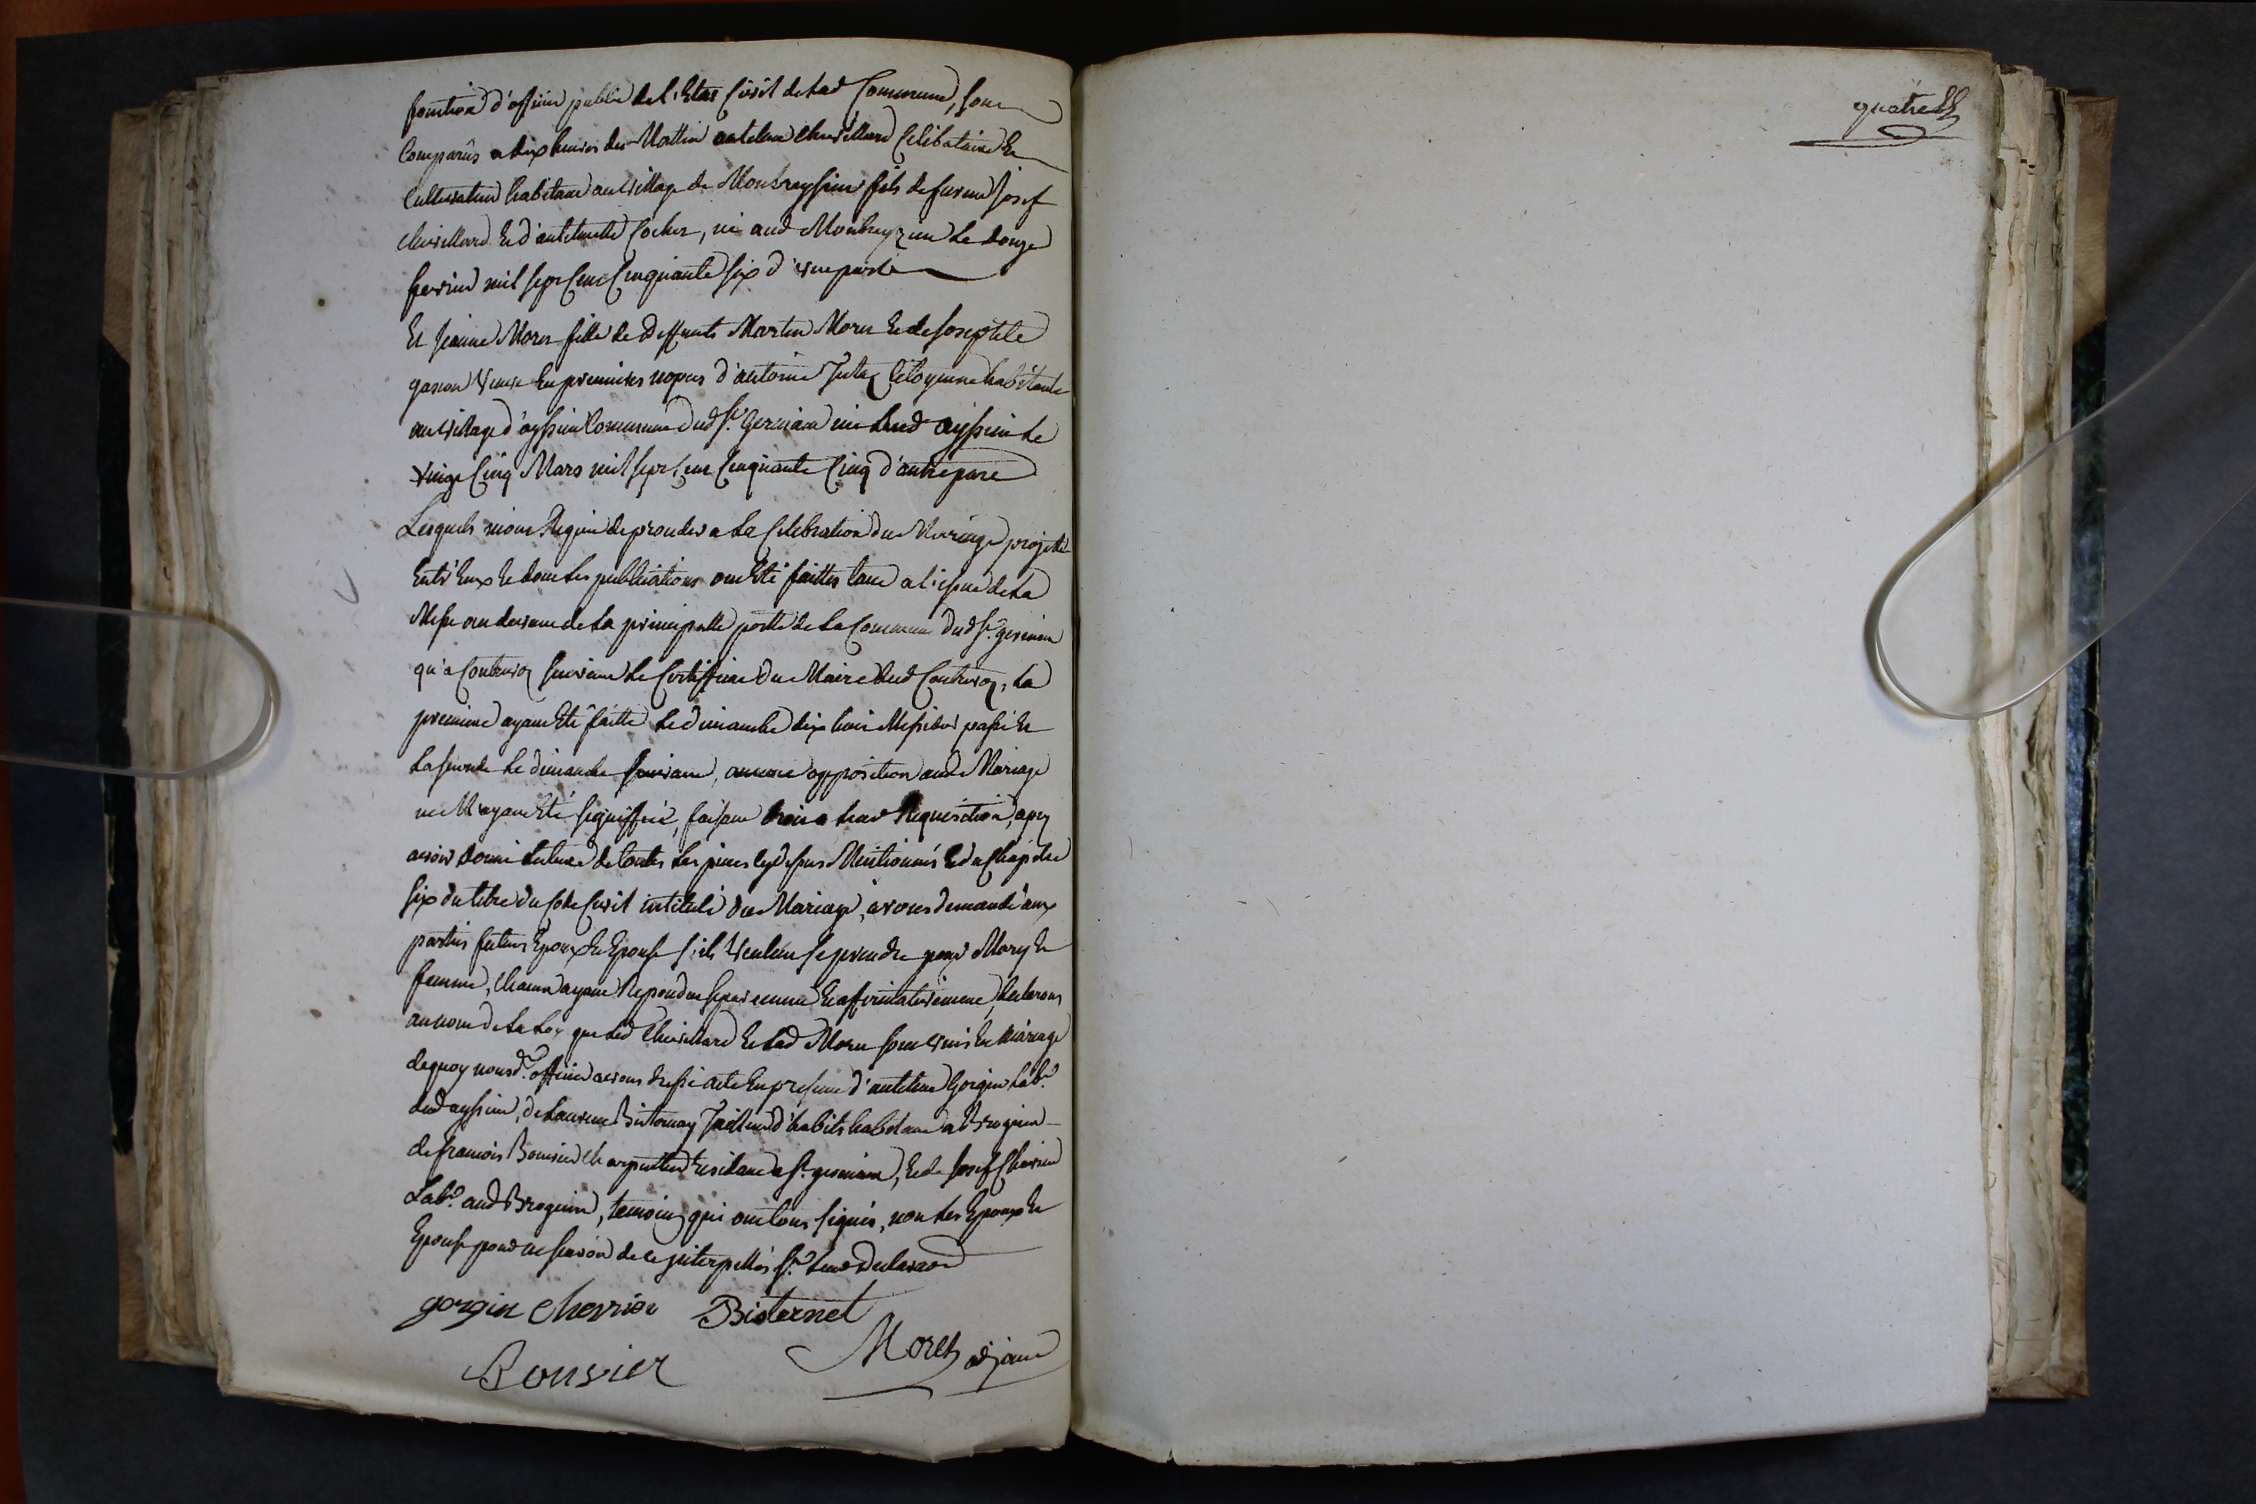 fonction d'officier public de l'Etat Civil de lad Commune, sont
Comparûs a dix heures du Mattin antelme chevillard Celibataire Et
Cultivateur habitant au village de Montreyssieu fils de furent Josef
chevillard Et d'antelmette Cocher, né aud le douze
fevrier mil sept Cent Cinquante six d'une part
Et Jeanne Moret fille de deffunts Martin Moret Et de Josephte
gascon veuve En premieres nopces d'antoine Citoyenne habitante
au village d'ayssieu Commune dud St. Germain née aud ayssieu le
vingt Cinq Mars mil sept Cent Cinquante Cinq d'autre part
Lesquels m'ont Requis de proceder a la Celebration du Mariage projetté
Entr'Eux Et dont les publications ont Eté faittes tant a l'issue de la
Messe au devant de la principalle porte de la Commune dud St. germain
qu'a Contrevoz suivant le Certifficat du Maire dud Contrevoz, la
premiere ayant Eté faitte le dimanche dix huit Messidor passé Et
la seconde le dimanche suivant, aucune opposition aud Mariage
ne M'ayant Eté signiffiée, faisant droit a leur Requisition, apres
avoir donné lecture de toutes les pieces cy dessus Mentionnés Et du Chapitre
six du titre du Code Civil intitulé du Mariage, avons demandé aux
parties futurs Epoux Et Epouse s'ils veulent se prendre pour Mary Et
femme, chacun ayant Repondu separement Et affirmativement, declarons
au nom de la Loy que led Chevillard Et lad Moret sont unis En Mariage
de quoy nousd. officier avons dressé acte En presence d'antelme Gorgin lab.r
dud ayssieu, de Laurent Bisternay Tailleur d'habits habitant a Brognin
de francois Bonsier charpentier Residant a St. germain, Et de Josef Chevrier
Lab.r aud Brognin, temoins qui ont tous signés, non les Epoux Et
Epouse pour ne sçavoir de ce jnterpellés Sr. leur declaraon
gorgin chevrier Bisternet
Bonsier Moret adjoint
quatre